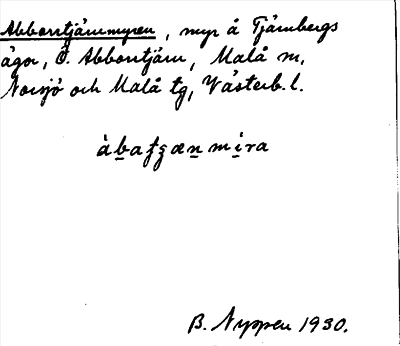 Abborrtjärnmyren, myr å Tjärnbergs
ägor, Ö. Abborrtjärn, Malå sn,
Norsjö och Malå tg, Västerb. l.
àb̠aʈʂæn̠mi̠ra
B. Nyppen 1930.